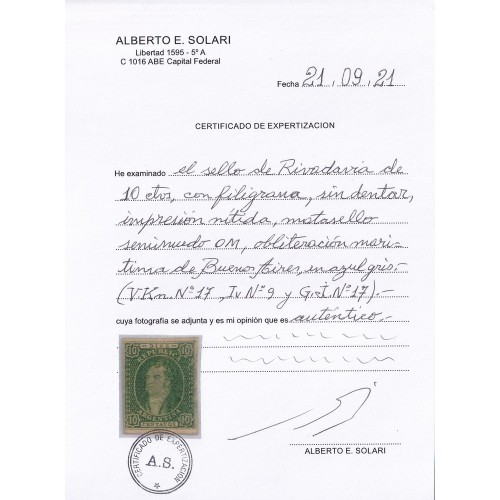 ALBERTO E. SOLARI
Libertad 1595 - 5º A
C 1016 ABE Capital Federal
Fecha 21.09.21
CERTIFICADO DE EXPERTIZACION
He examinado el sello de Rivadavia de
10 ctvs, con filigrana, sin dentar,
impresión nítida, matasello
semimudo OM, obliteración marí-
tima de Buenos Aires, en azul gris.-
(V.K.n. Nº 17, Iv. Nº 9 y G.J. Nº 17).-
cuya fotografía se adjunta y es mi opinión que es auténtico.-
DIEZ
10 REPUBLICA 10
ARGENTINA
10 CENTAVOS 10
CERTIFICADO DE EXPERTIZACION
A.S.
ALBERTO E. SOLARI